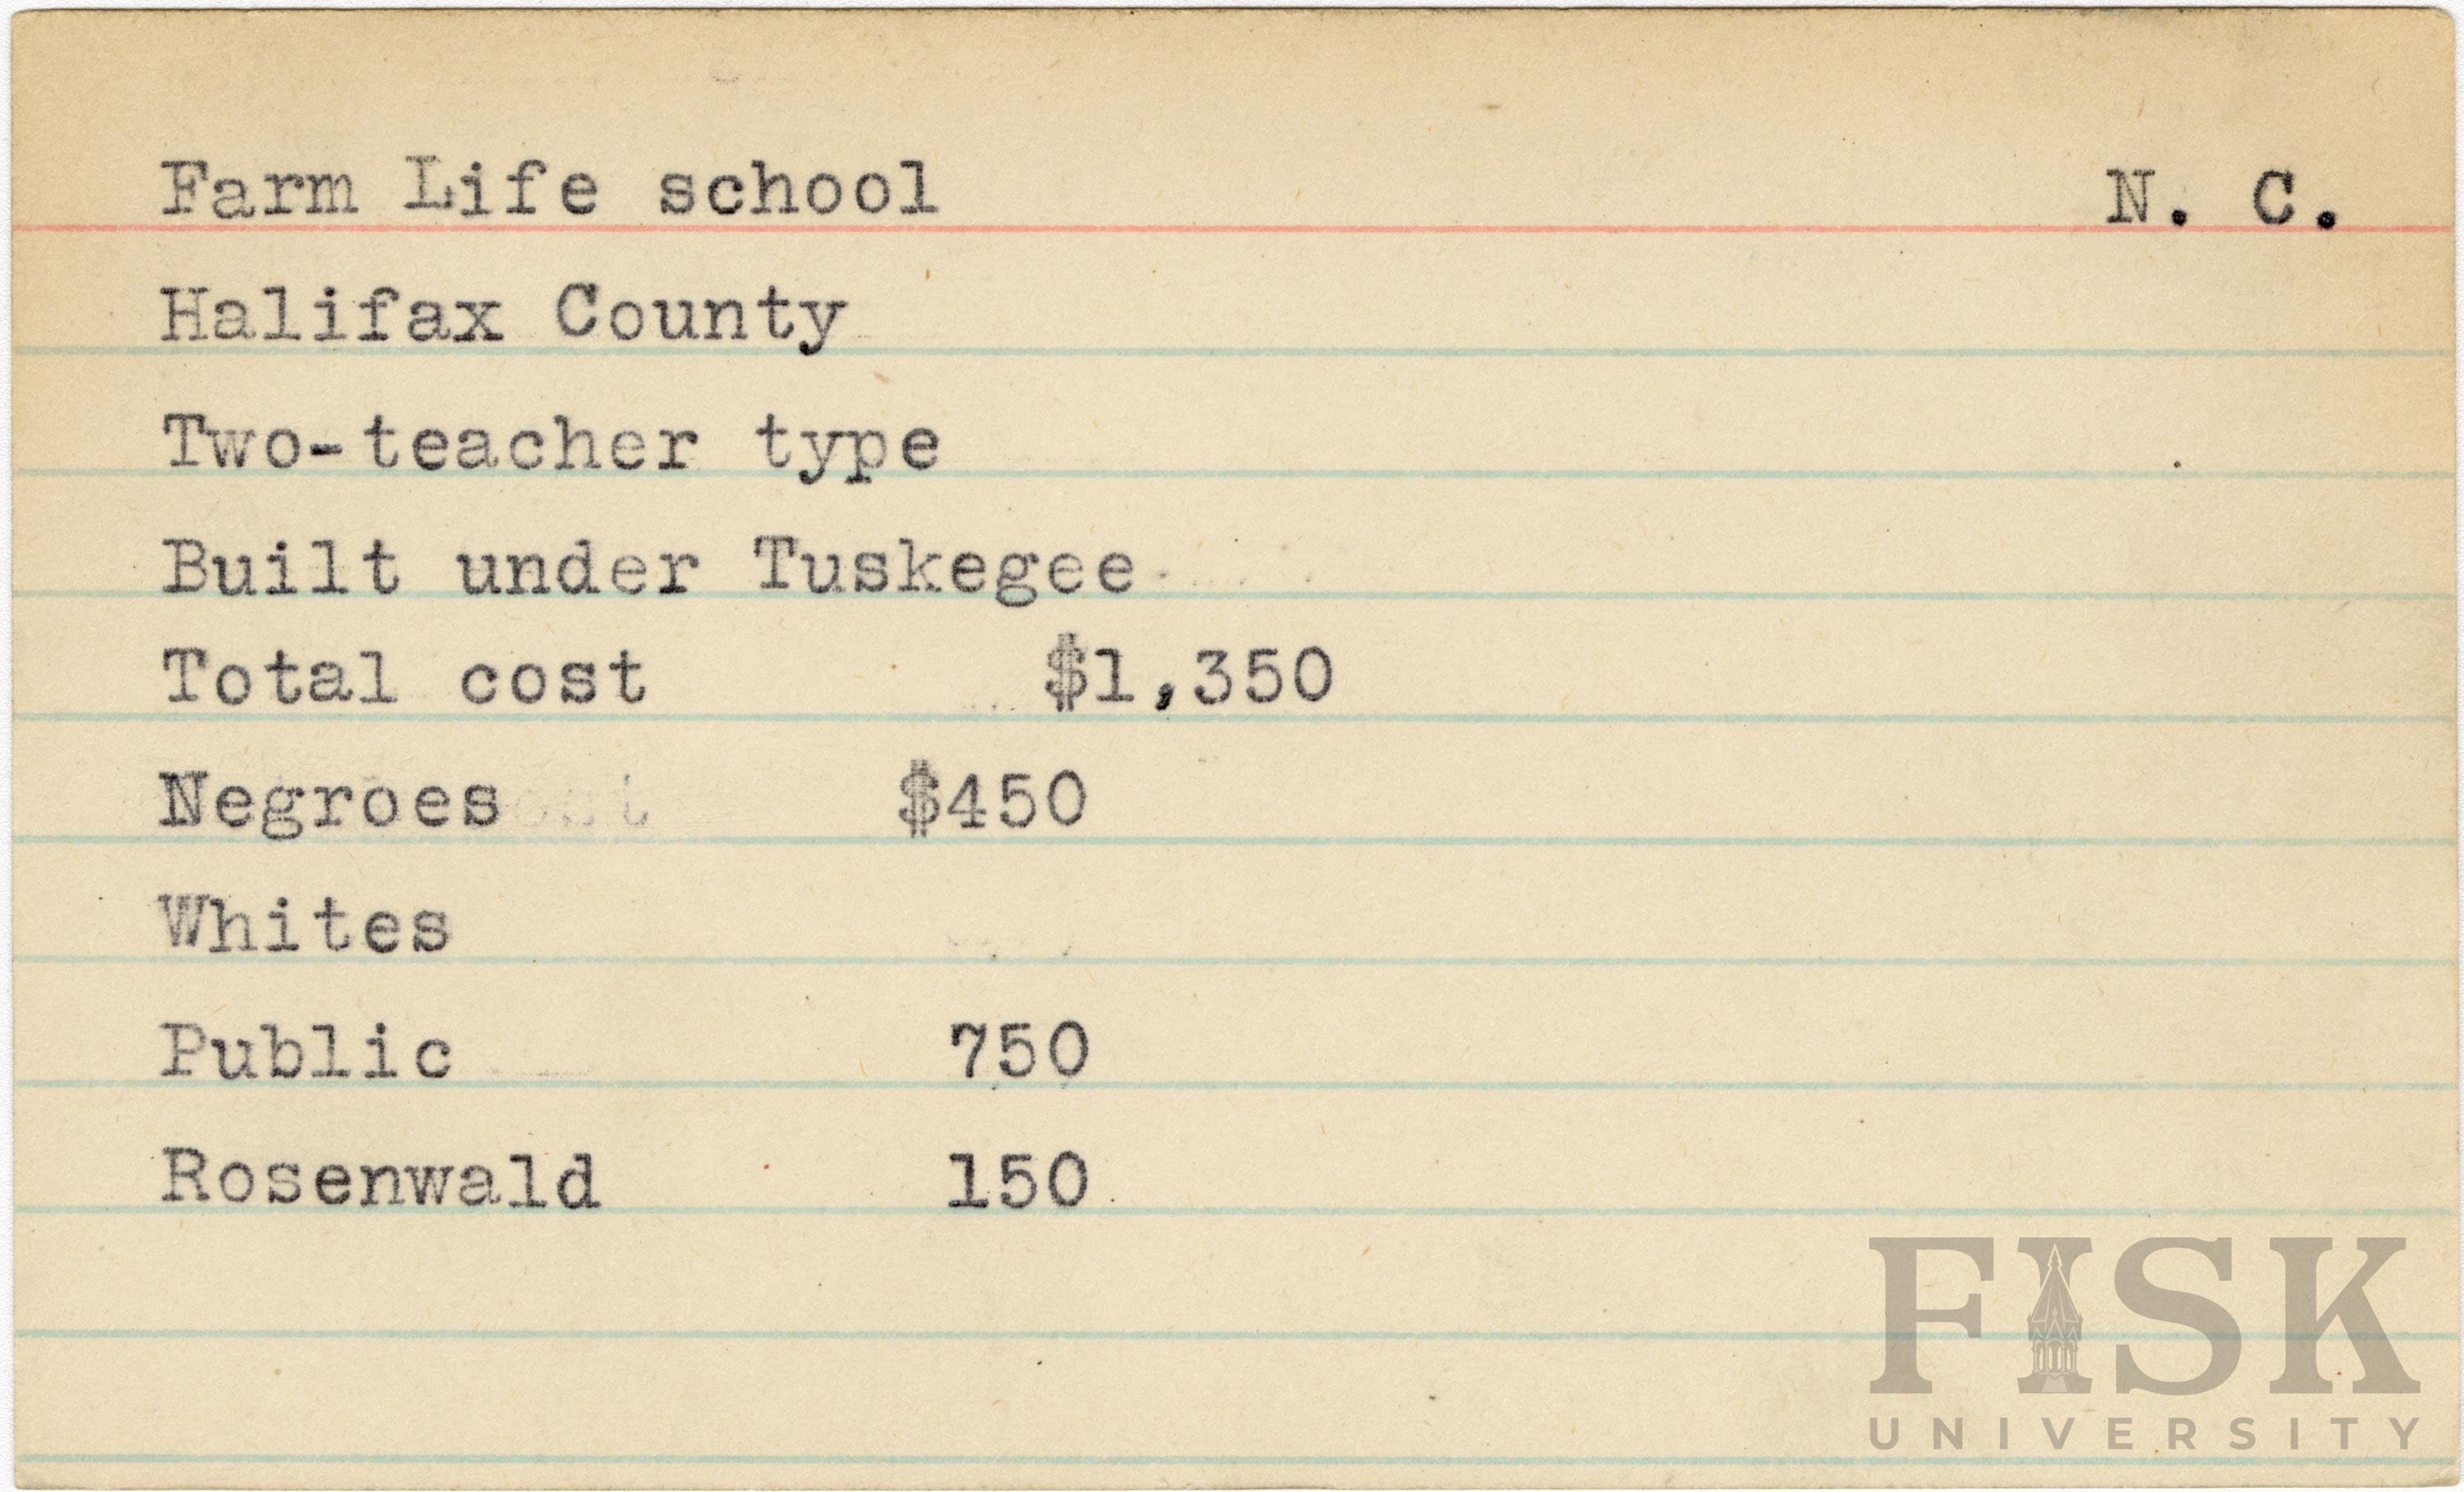 Farm Life school N. C.
Halifax County
Two-teacher type
Built under Tuskegee
Total cost $1,350
Negroes $450
Whites
Public 750
Rosenwald 150
FISK
UNIVERSITY